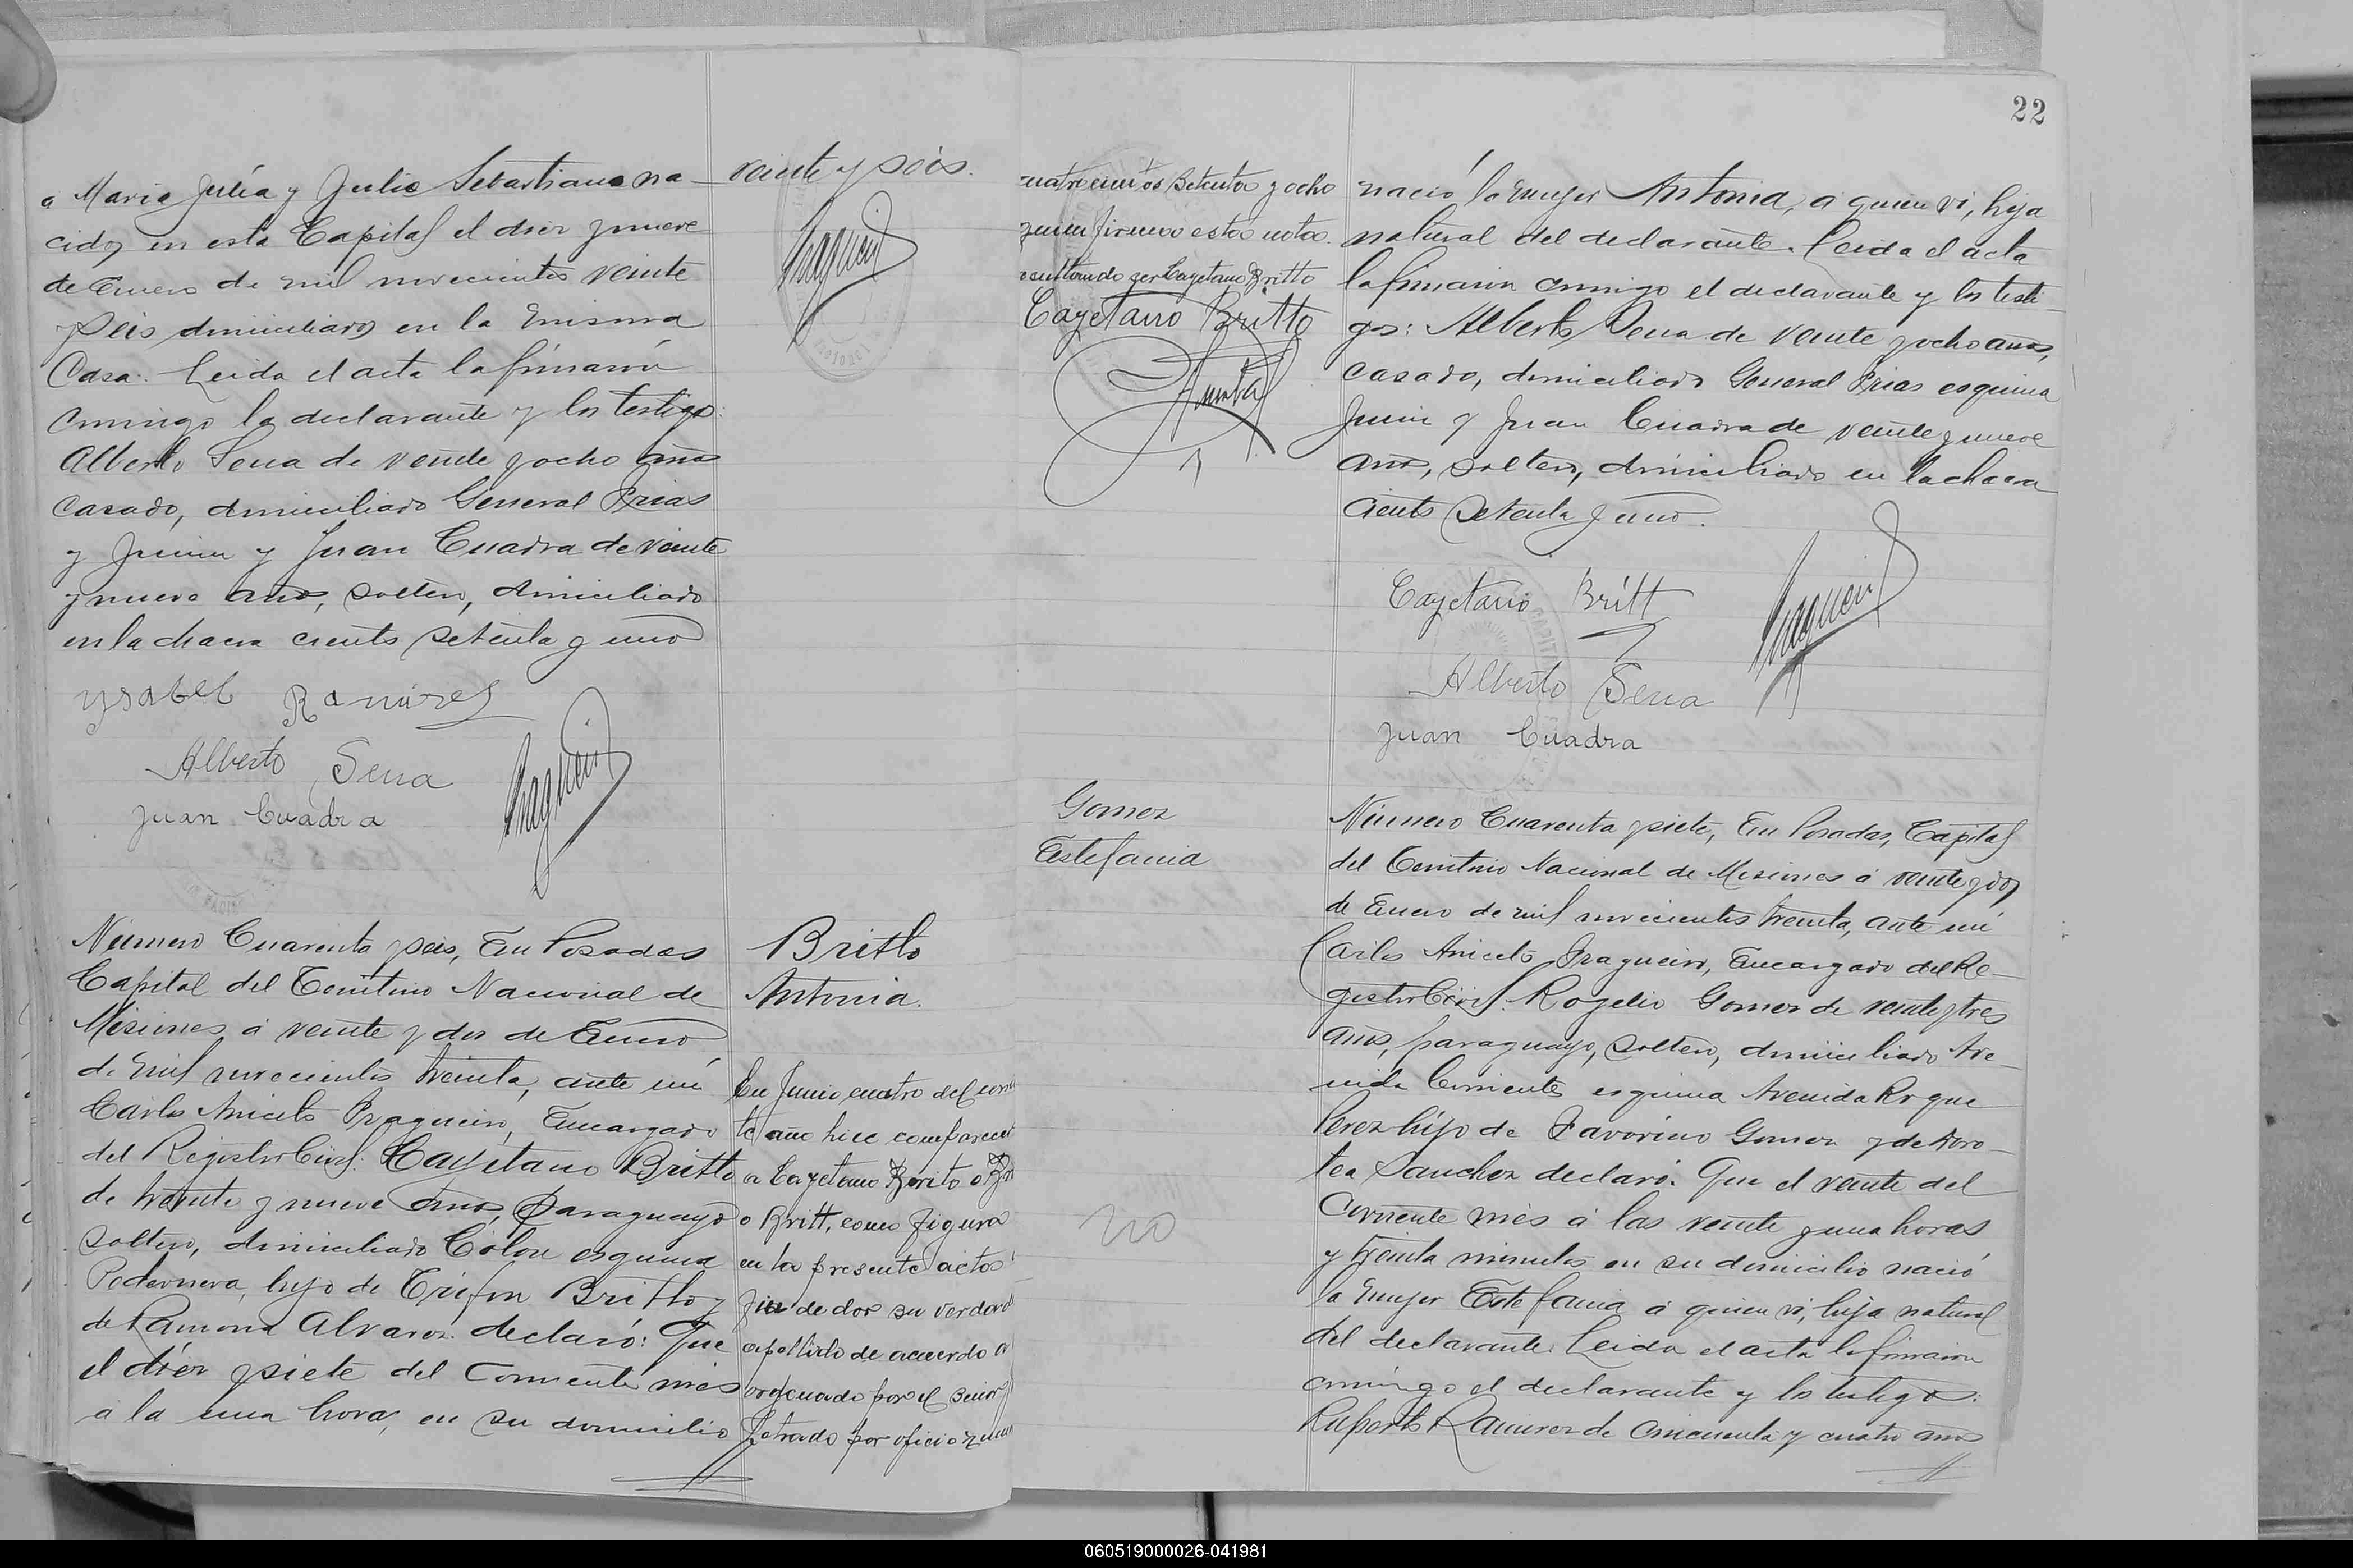 a Maria Julia y Julio Sebastiano na
cidos en esta Capital el diez y nueve
de Enero de mil novecientos veinte
y seis domiciliados en la misma
Casa. Leida el acta la firmaron
conmigo la declarante y los testigos:
Alberto Sena de veinte y ocho años
casado, domiciliado General Frias
y Junin y Juan Cuadra de veinte
y nueve años, soltero, domiciliado
en la chacra ciento setenta y uno
Ysabel Ramirez
Alberto Sena
Juan Cuadra
veinte y seis.
Número Cuarenta y seis, En Posadas
Capital del Territorio Nacional de
Misiones á veinte y dos de Enero
de mil novecientos treinta, ante mí
Carlos Aniceto Fragueiro, Encargado
del Registro Civil: Cayetano Britto
de treinta y nueve años, paraguayo
soltero, domiciliado Colon esquina
Pedernera, hijo de Trifon Britto y
de Ramona Alvarez declaró: Que
el diez y siete del corriente mes
a la una hora, en su domicilio
Britto
Antonia.
En Junio cuatro del
te año hice
a Cayetano Borito o
o Britt, como figura
en la presente acta
fin de dar su
apellido de acuerdo
ordenado por el Señor
Letrado por oficio
22
cuatrocientos setenta y ocho
quien firma esta nota.
resultando ser Cayetano Britto
Cayetano Britto
nació la mujer Antonia, a quien vi, hija
natural del declarante. Leida el acta
la firmaron conmigo el declarante y los testi
gos: Alberto Sena de veinte y ocho años,
casado, domiciliado General Frias esquina
Junin y Juan Cuadra de veinte y nueve
años, soltero, domiciliado en la chacra
ciento setenta y uno.
Cayetano Britt
Alberto Sena
Juan Cuadra
Gomez
Estefania
no
Número Cuarenta y siete, En Posadas, Capital
del Territorio Nacional de Misiones á veinte y dos
de Enero de mil novecientos treinta, ante mí
Carlos Aniceto Fragueiro, Encargado del Re-
gistro Civil: Rogelio Gomez de veinte y tres
años, paraguayo, soltero, domiciliado Ave-
nida Corrientes esquina Avenida Roque
Perez hijo de Favorino Gomez y de Doro-
tea Sanchez declaró: Que el veinte del
corriente mes á las veinte y una horas
y treinta minutos en su domicilio nació
la mujer Estefania á quien vi, hija natural
del declarante. Leida el acta la firmaron
conmigo el declarante y los testigos:
Ruperto Ramirez de cincuenta y cuatro años
060519000026-041981